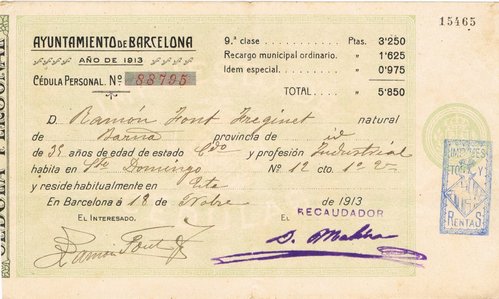 15465
AYUNTAMIENTO DE BARCELONA
AÑO DE 1913
CÉDULA PERSONAL. Nº 88795
9.ª clase Ptas. 3'250
Recargo municipal ordinario. " 1'625
Idem especial. " 0'975
TOTAL. " 5'850
CÉDULA PERSONAL
D. Ramón Font Freginet natural
de Barña provincia de id
de 35 años de edad de estado Cdo y profesión Industrial
habita en Sto Domingo N.º 12 cto. 1º 2ª
y reside habitualmente en Esta
En Barcelona á 18 de Nobre de 1913
EL INTERESADO, EL RECAUDADOR
Ramón Font
IMPRESOS
RENTAS